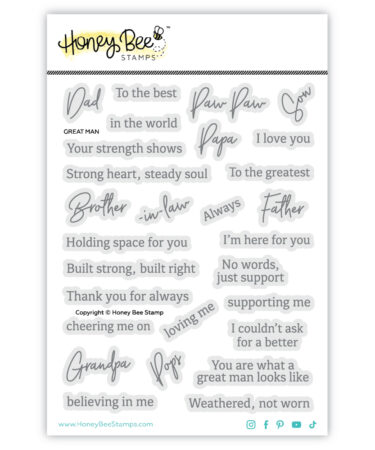 Honey Bee
STAMPS
™
Dad
To the best
Paw Paw
Son
in the world
GREAT MAN
Papa
I love you
Your strength shows
Strong heart, steady soul
To the greatest
Brother
-in-law
Always
Father
Holding space for you
I'm here for you
Built strong, built right
No words,
just support
Thank you for always
supporting me
Copyright © Honey Bee Stamp
cheering me on
loving me
I couldn't ask
for a better
Grandpa
Pops
You are what a
great man looks like
believing in me
Weathered, not worn
www.HoneyBeeStamps.com